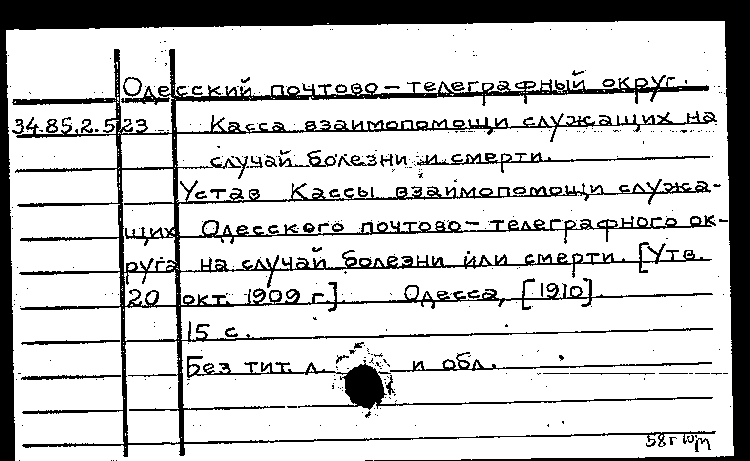 Одесский почтово-телеграфный округ.
34.85.2.523 Касса взаимопомощи служащих на
случай болезни и смерти.
Устав Кассы взаимопомощи служа-
щих Одесского почтово-телеграфного ок-
руга на случай болезни или смерти. [Утв.
20 окт. 1909 г]. Одесса, [1910].
15 с.
Без тит. л. и обл.
58г